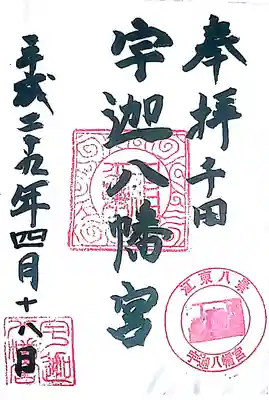 奉拝 千田
宇迦八幡宮
平成二十九年四月十八日
江東八景
宇迦八幡宮